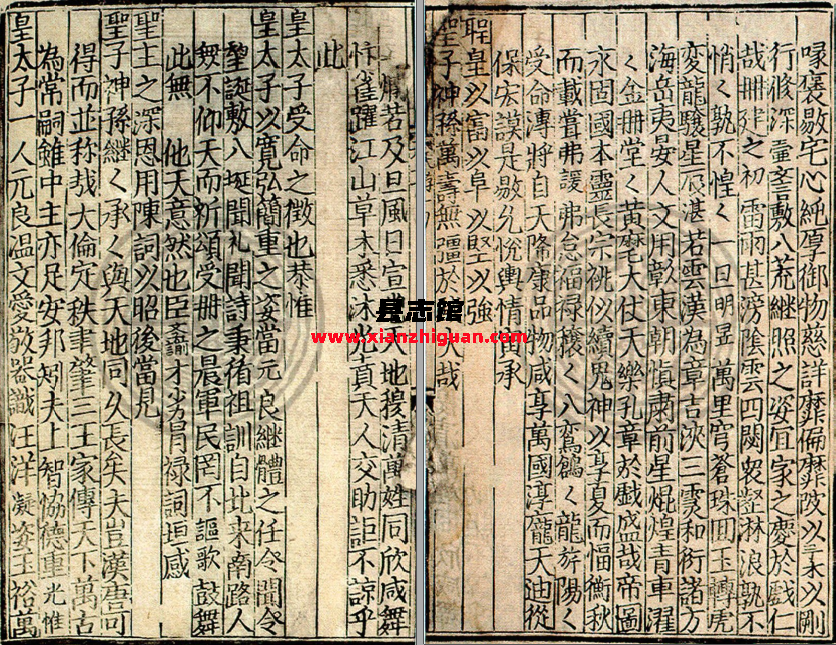 喙褒敭宅心純厚御物慈詳靡偏靡陂以柔以剛
行脩深敷八荒繼照之姿宜家之慶於戲仁
哉冊建之初雷雨甚滂陰雲四閼衆盭淋浪孰不
悄く孰不惶く一旦明昱萬里穹蒼珠囬玉轉虎
変龍驤星辰湛若雲漢為章吉浹三霙和衍諸方
海岳夷晏人文用彰東朝愼肅前星焜煌青車濯
く金冊堂く黄麾大仗天樂孔章於戲盛哉帝圖
永固國本靈長宗祧似續鬼神以享夏而楅衡秋
而載嘗弗諼弗怠福禄穰く八鸞鶬く龍旂陽く
受命溥將自天降康品物咸亨萬國淳龎天迪從
保宏謨是敭允悅輿情畱承
聖皇以富以阜以堅以強
聖子神孫萬壽無疆於大哉
情若及旦風日宣天地穆清萬姓同欣咸舞
忭雀躍江山草木悉沐光賁天人交助詎不諒乎
此
皇太子受命之徵也恭惟
皇太子以寬弘簡重之姿當元良繼體之任令聞令
望誕敷八埏聞礼聞詩秉循祖訓自比来南路人
無不仰天而祈頌受冊之晨軍民罔不謳歌鼓舞
此無 他天意然也臣才劣冒禄詞垣感
聖主之深恩用陳詞以昭後當見
聖子神孫繼く承く與天地同久長矣夫豈漢唐可
得而並称哉大倫定秩書肇三王家傳天下萬古
為常嗣雖中主亦足安邦矧夫上智協德重光惟
皇太子一人元良温文愛敬器識汪洋凝姿玉裕萬
县志馆
www.xianzhiguan.com